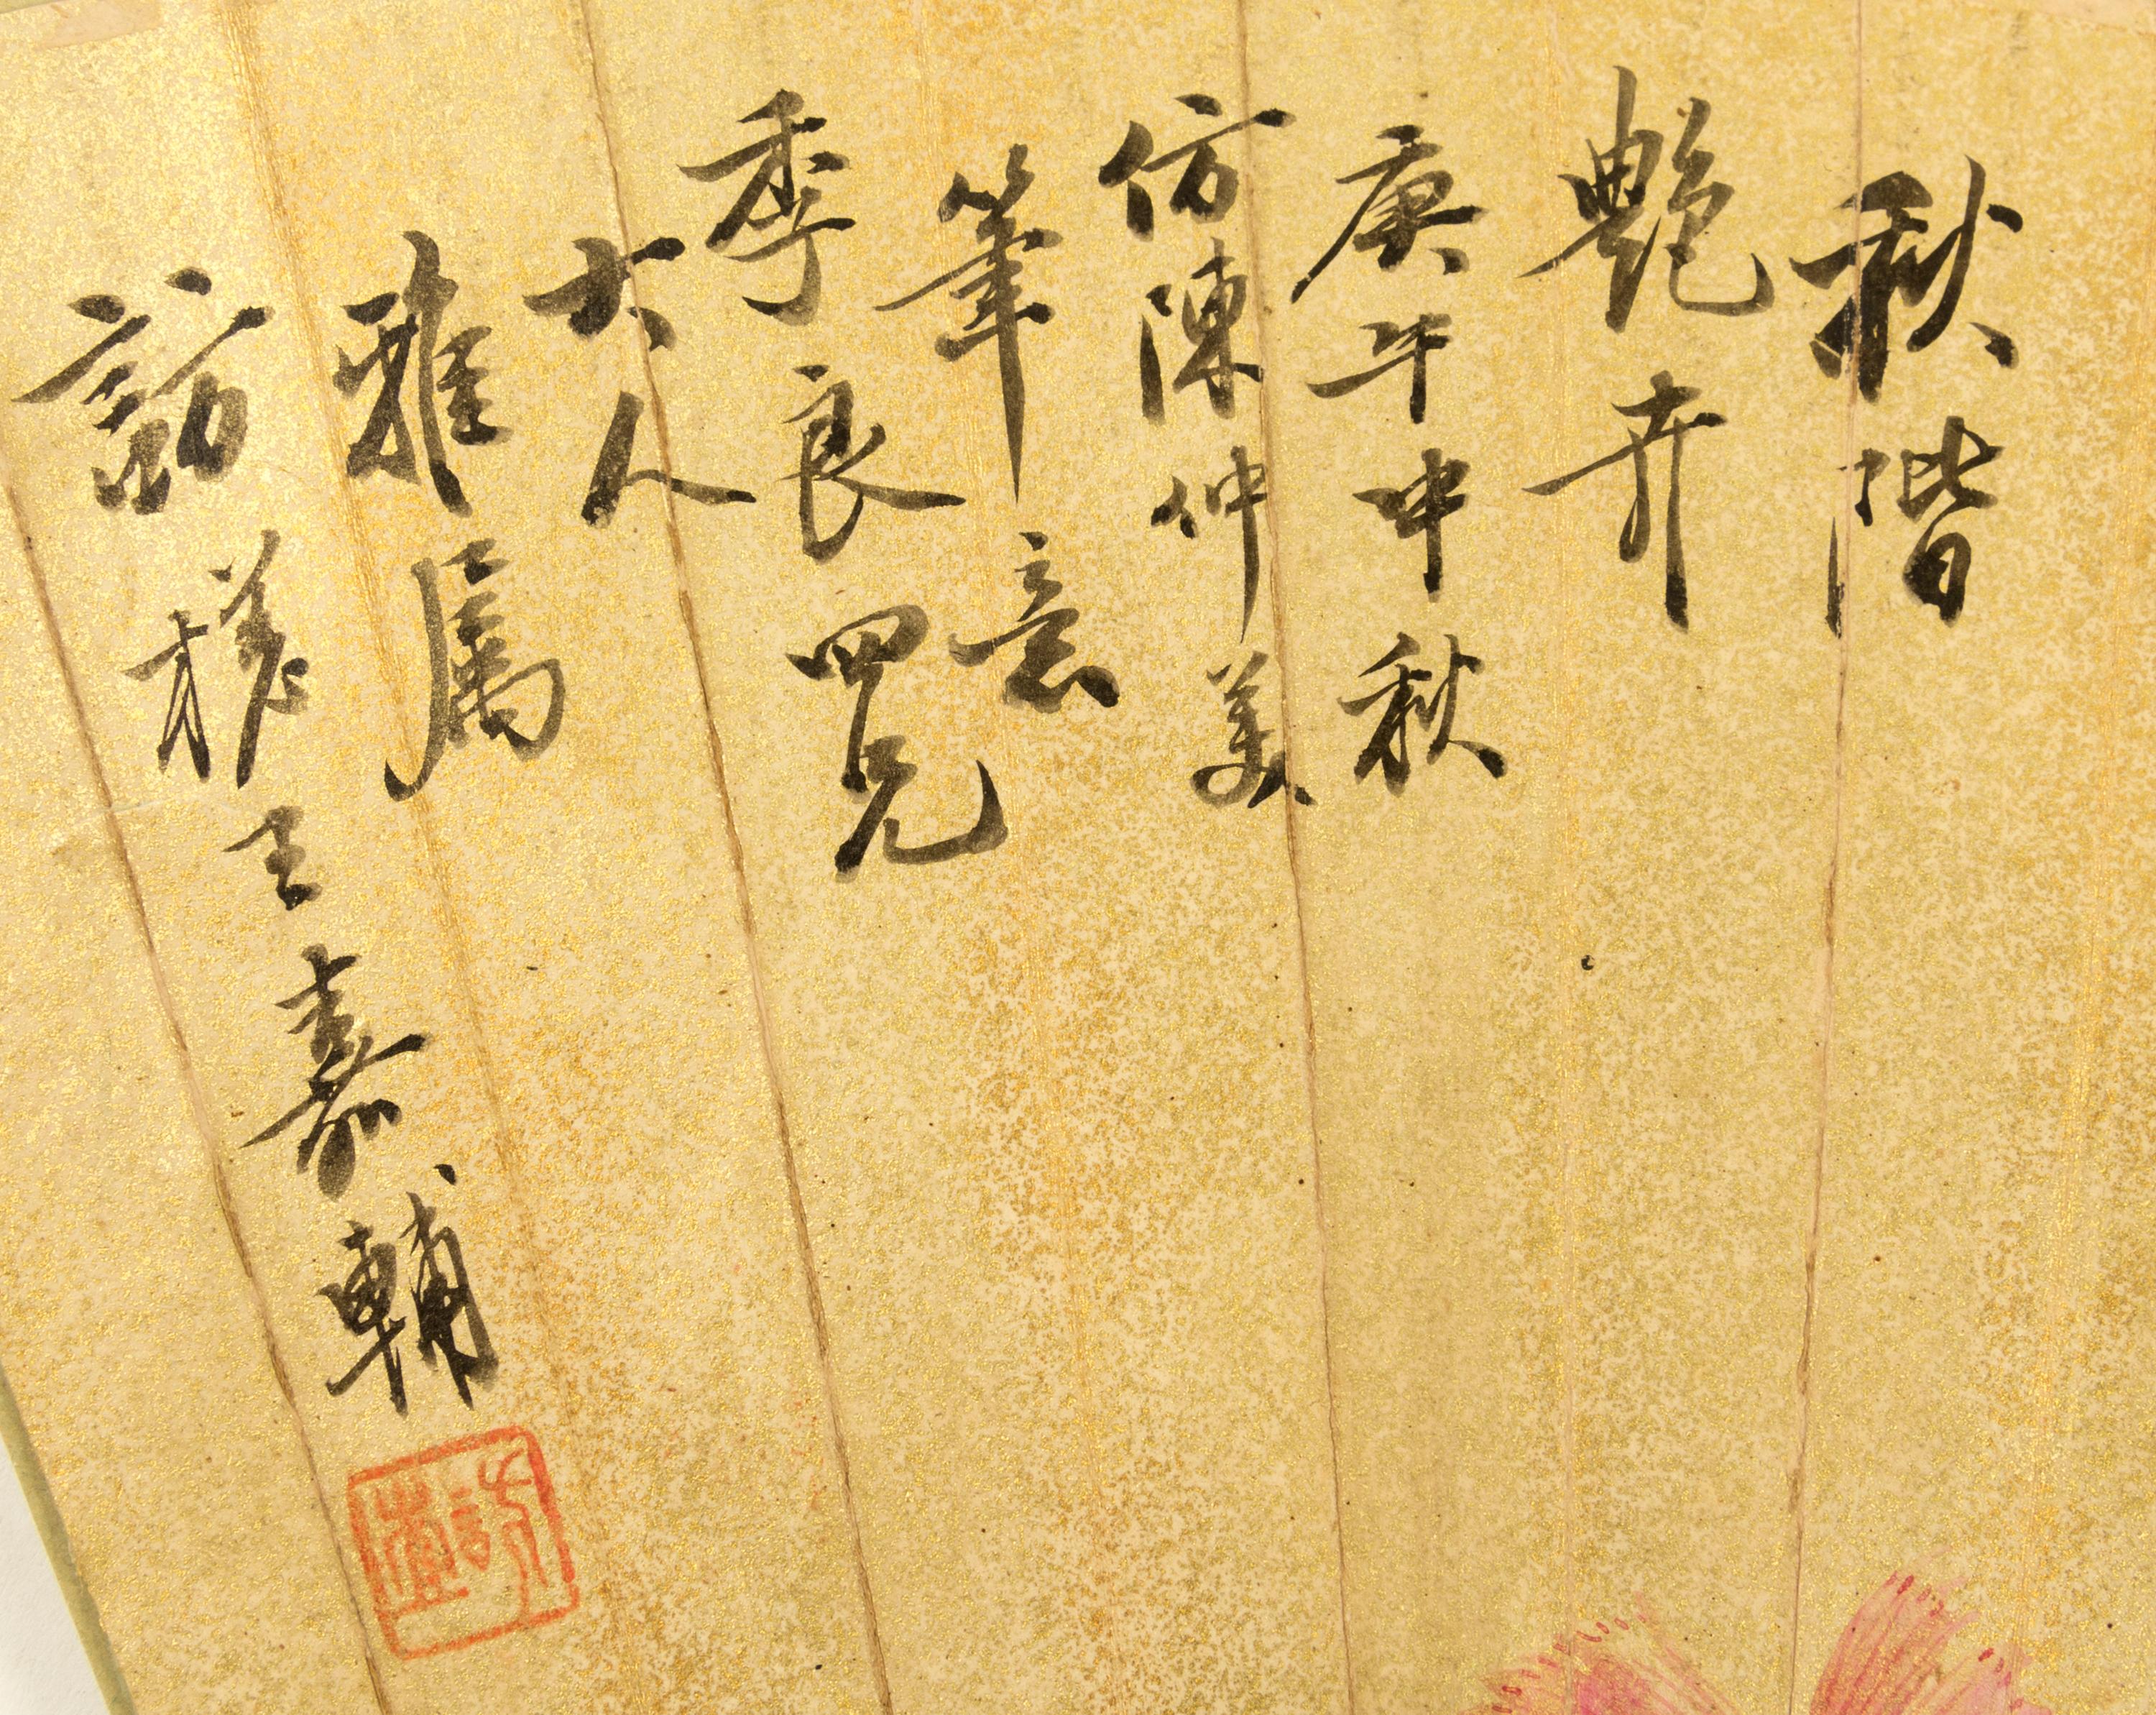 秋階
艷卉
庚午中秋
仿陳仲美
筆意
季良四兄
大人
雅属
訪樵王嘉輔
訪